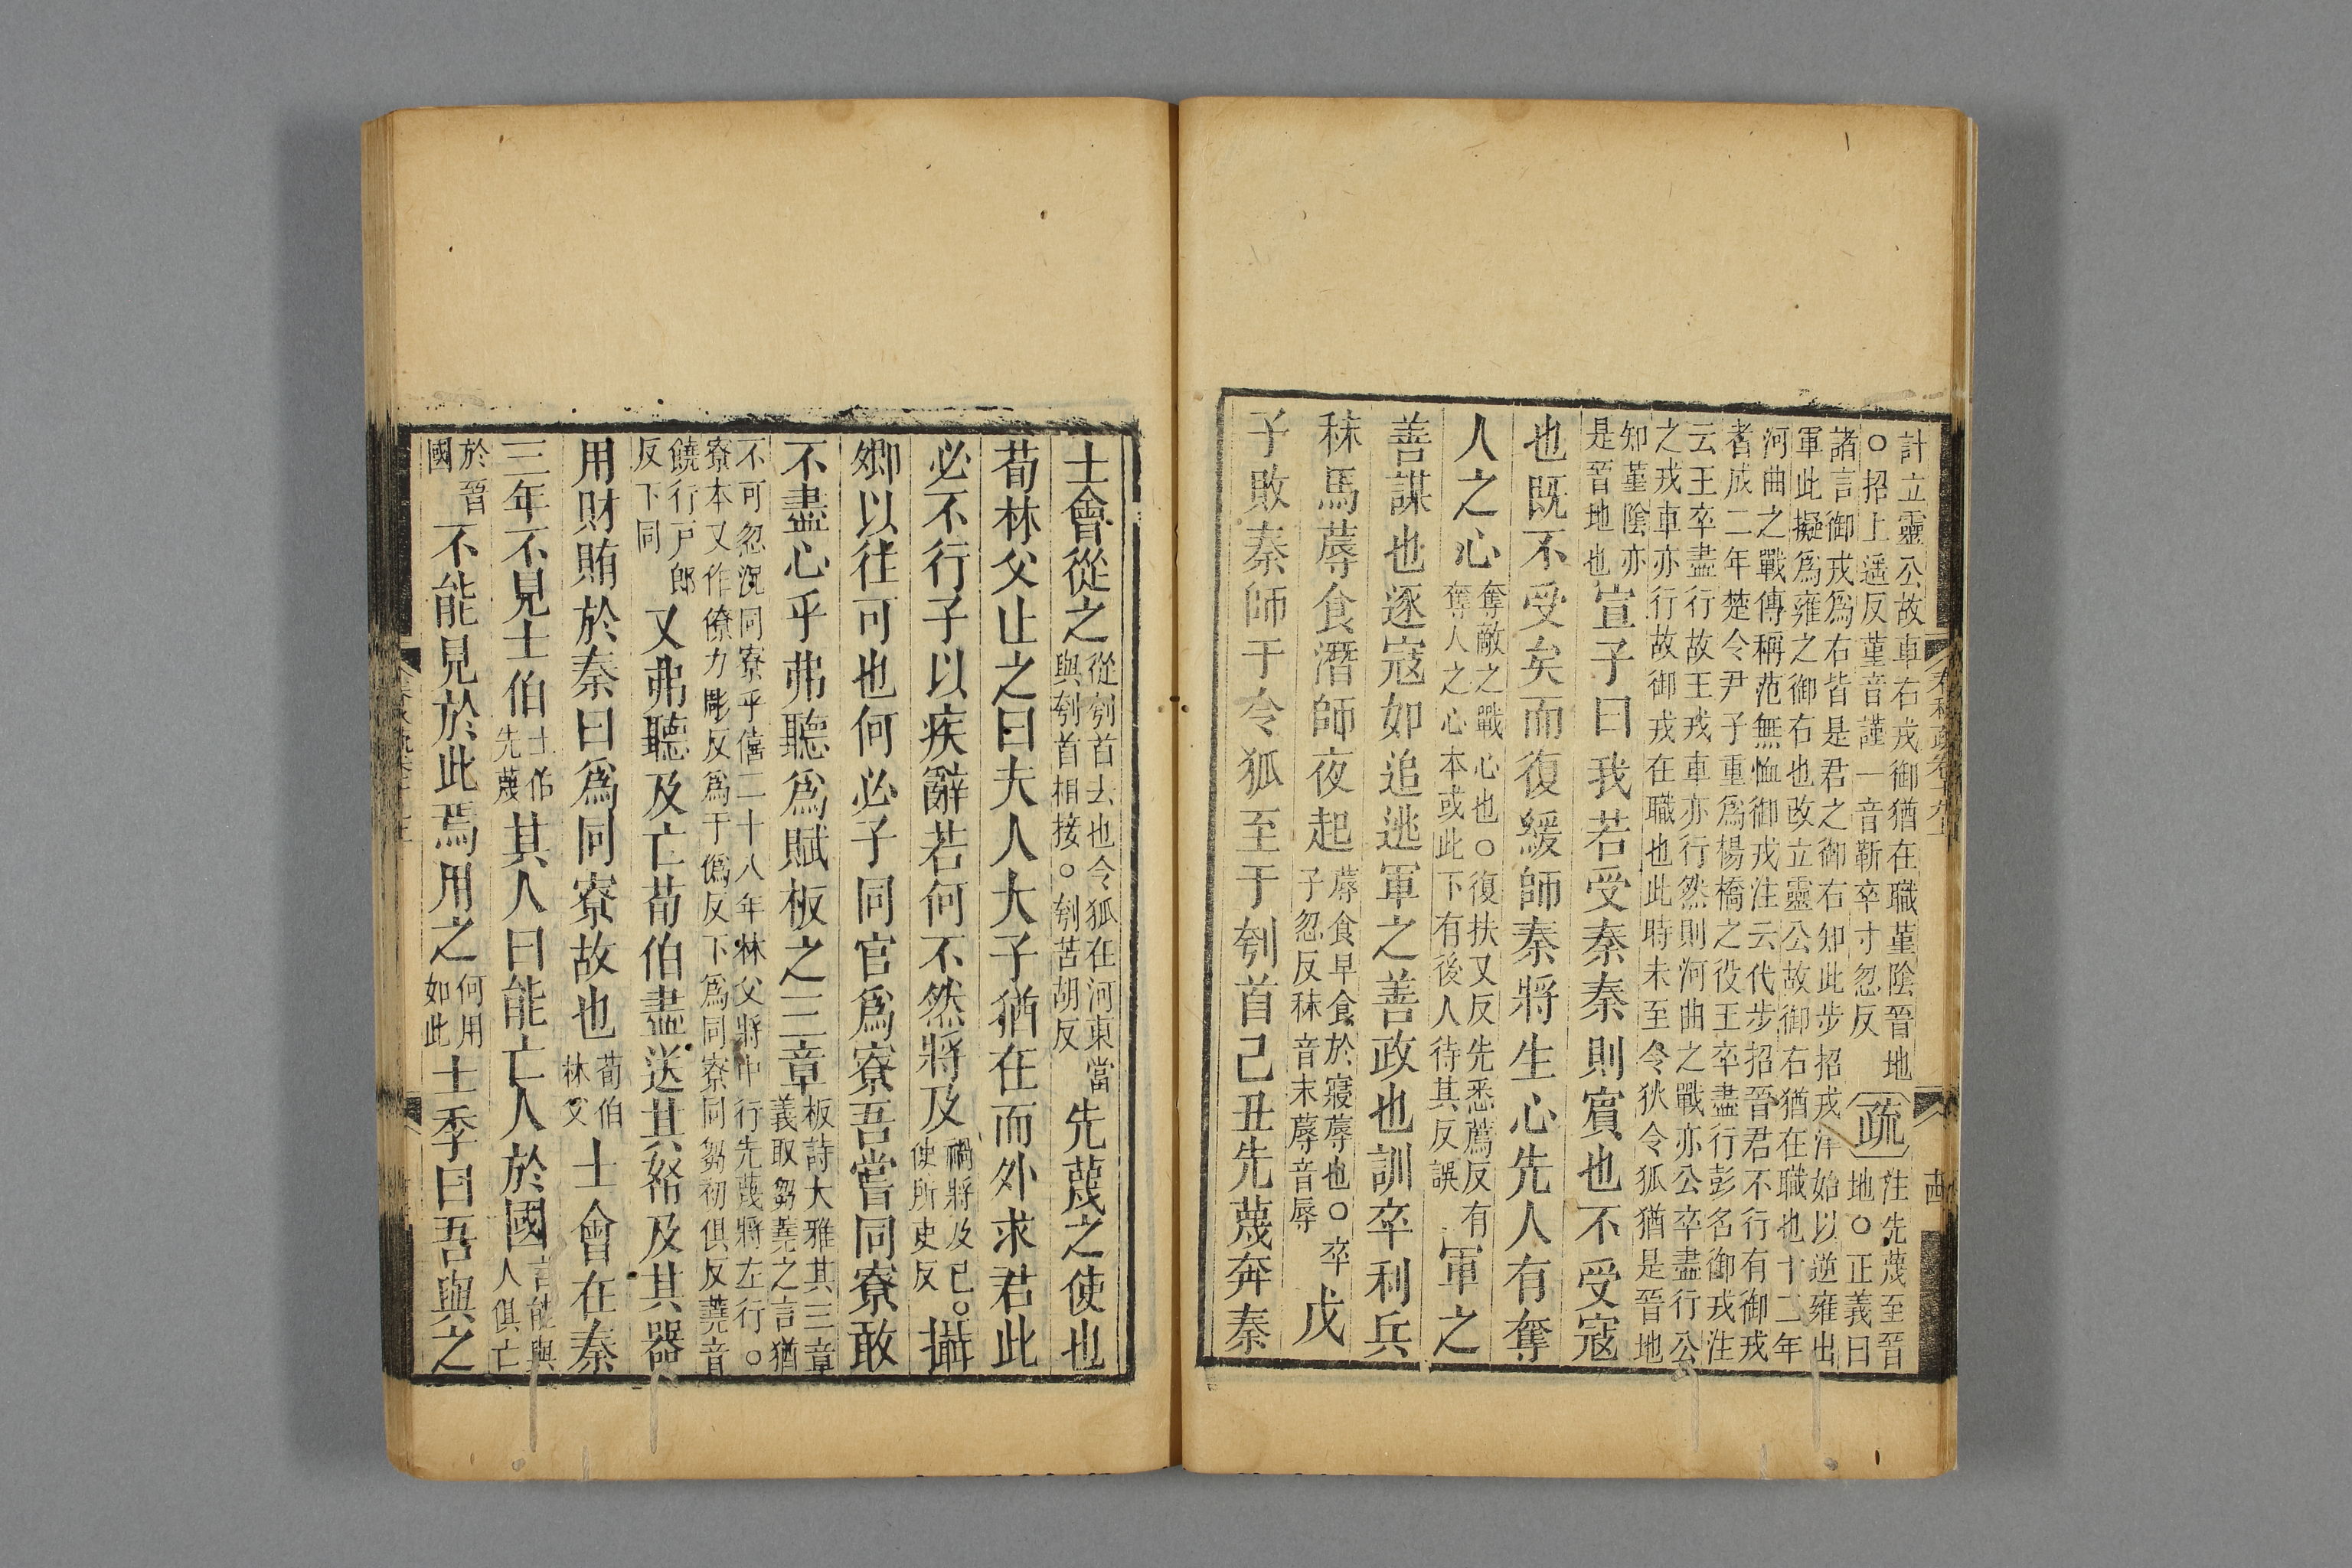 計立靈公故車右戎御猶在職菫陰晉地
○招上遥反菫音謹一音靳卒寸忽反
疏
注先蔑至晉
地○正義曰
諸言御戎爲右皆是君之御右知此步招戎津始以逆雍出
軍此擬爲雍之御右也改立靈公故御右猶在職也十二年
河曲之戰傳稱范無恤御戎注云代步招晉君不行有御戎
者成二年楚令尹子重爲楊橋之役王卒盡行彭名御戎注
云王卒盡行故王戎車亦行然則河曲之戰亦公卒盡行公
之戎車亦行故御戎在職也此時未至令狄令狐猶是晉地
知菫陰亦
是晉地也
宣子曰我若受秦秦則賓也不受寇
也既不受矣而復緩師秦將生心先人有奪
人之心
奪敵之戰心也○復扶又反先悉薦反有
奪人之心本或此下有後人待其反誤
軍之
善謀也逐寇如追逃軍之善政也訓卒利兵
秣馬蓐食潛師夜起
蓐食早食於寢蓐也○卒
子忽反秣音末蓐音辱
戊
子敗秦師于令狐至于刳首己丑先蔑奔秦
士會從之
從刳首去也令狐在河東當
與刳首相接○刳苦胡反
先蔑之使也
荀林父止之曰夫人大子猶在而外求君此
必不行子以疾辭若何不然將及
禍將及己○
使所吏反
攝
卿以往可也何必子同官爲寮吾嘗同寮敢
不盡心乎弗聽爲賦板之三章
板詩大雅其三章
義取芻蕘之言猶
不可忽況同寮乎僖二十八年林父將中行先蔑將左行○
寮本又作僚力彫反爲于僞反下爲同寮同芻初俱反蕘音
饒行戸郎
反下同
又弗聽及亡荀伯盡送其帑及其器
用財賄於秦曰爲同寮故也
荀伯
林父
士會在秦
三年不見士伯
士伯
先蔑
其人曰能亡人於國
言能與
人俱亡
於晉
國
不能見於此焉用之
何用
如此
士季曰吾與之